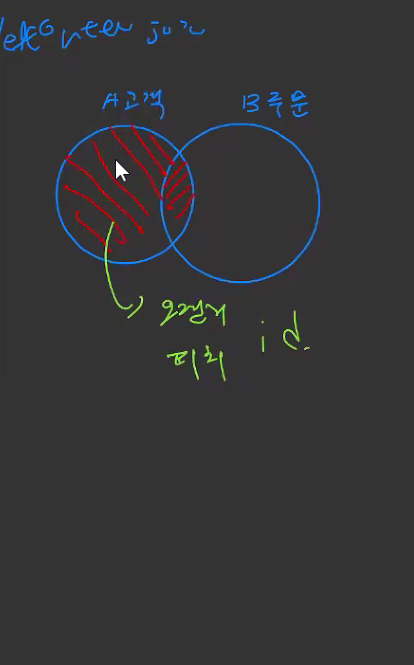 left Outer join
A고객 B주문
id